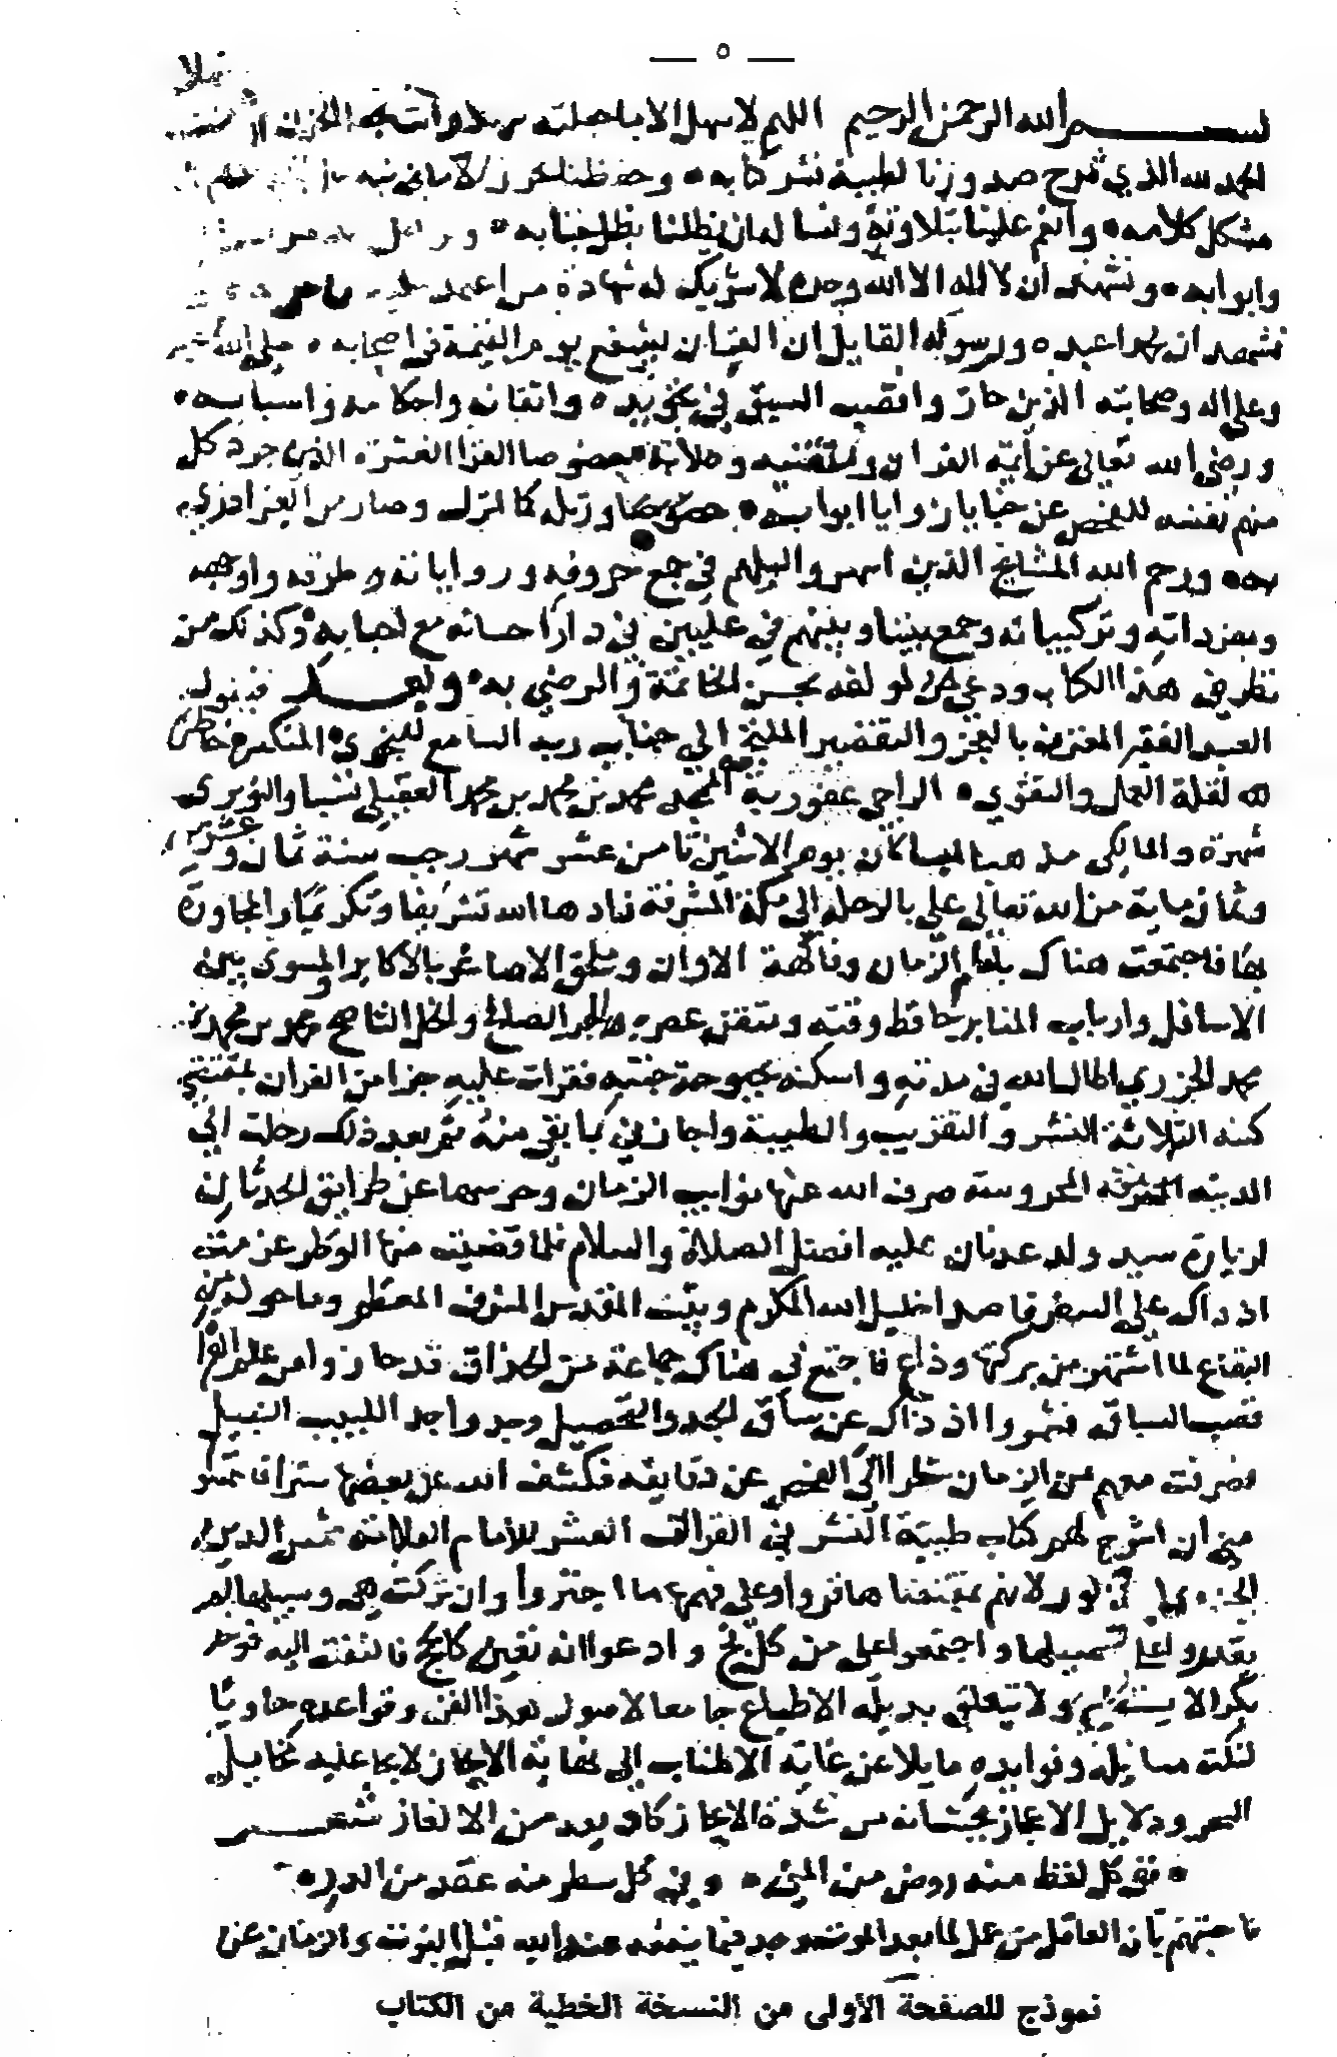 — ٥ —
بســـــم الله الرحمن الرحيم اللهم لا سهل الا ما جعلته سهلا وانت
الحمد لله الذي شرح صدورنا لطيبة نشر كتابه ٠ وحفظنا
مشكل كلامه ٠ وانعم علينا بتلاوته ونسأله ان يظلنا بظل جنابه ٠
وابوابه ٠ ونشهد ان لا اله الا الله وحده لا شريك له شهادة من اعتمد عليه
نشهد ان محمدا عبده ٠ ورسوله القايل ان القران ليشفع يوم القيمة في اصحابه ٠ صلى الله عليه
وعلى اله وصحابته الذين حازوا قصب السبق في تجويده ٠ واتقانه واحكامه واسبابه ٠
ورضي الله تعالى عن ايمة القران ومتقنيه وطلابه خصوصا القرا العشرة الذين جرد كل
منهم نفسه للفحص عن خبايا زوايا ابوابه ٠ ورتله كما انزل وصار من
به ٠ ورحم الله المشايخ الذين في جمع حروفه ورواياته وطرقه واوجهه
ومفرداته وتركيباته وجمع بيننا وبينهم في عليين في دار احسانه مع احبابه ٠ وكذلك من
نظر في هذا الكتاب ودعى لمولفه بحسن الخاتمة والرضى به ٠ وبعـــــد فيقول
العبد الفقير المعترف بالعجز والتقصير الملتجي الى جناب ربه السامع للنجوى ٠ المنكسر خاطره
لقلة العمل والتقوى ٠ الراجي عفو ربه محمد بن محمد بن محمد العقيلي نسبا والنويري
شهرة والمالكي مذهبا لما كان يوم الاثنين ثامن عشر شهر رجب سنة ثمان وعشرين
وثمان ماية من الله تعالى علي بالرحلة الى مكة المشرفة زادها الله تشريفا وتكريما والمجاورة
بها فاجتمعت هناك بامام الزمان وفاكهة الاوان وملحق الاصاغر بالاكابر والمسوي بين
الاسافل وارباب المنابر حافظ وقته ومتقن عصره والخل الناصح محمد بن محمد بن
محمد الجزري اطال الله في مدته واسكنه بحبوحة جنته فقرات عليه جزا من القران بمقتضى
كتبه الثلاثة النشر والتقريب والطيبة واجازني بما بقي منه ثم بعد ذلك رحلت الى
المدينة المحروسة صرف الله عنها نوايب الزمان وحرسها عن طرايق الحدثان
لزيارة سيد ولد عدنان عليه افضل الصلاة والسلام فلما قضيت منها الوطر عزمت
اذ ذاك على السفر قاصدا خليل الله المكرم وبيت المقدس المشرف المعظم وما حوله من
البقاع لما اشتهر من بركتها وذاع فاجتمع بي هناك جماعة من الحذاق قد حازوا من علوم القرا
قصب السباق فشمروا اذ ذاك عن ساق الجد والتحصيل وجد واجد اللبيب النبيل
فصرفت معهم من الزمان شطرا الى الفحص عن دقايقه فكشف الله عن بعضها سترا فالتمسوا
مني ان اشرح لهم كتاب طيبة النشر في القراات العشر للامام العلامة شمس الدين
الجزري لانهم بمقتضاها قروا وعلى فهمها ما اجتروا وان تركت هي وسبيلها لم
يقدروا على تحصيلها واجتمعوا علي من كل فج وادعوا انه تعين كالحج فالتفت اليه
بكرا لا ولا تتعلق بذيله الاطماع جامعا لاصول هذا الفن وقواعده حاويا
لنكت مسايله وفوايده مايلا عن غاية الاطناب الى نهاية الايجاز لايحا عليه مخايل
السحر ودلايل الاعجاز بحيث انه من شدة الايجاز كاد يعد من الالغاز شعـــــر
٠ ففي كل لفظ منه روض من المنى ٠ وفي كل سطر منه عقد من الدرر ٠
فاجبتهم بان العاقل من عمل لما بعد الموت وجد فيما ينفعه عند الله قبل الفوت والزمان عن
نموذج للصفحة الأولى من النسخة الخطية من الكتاب